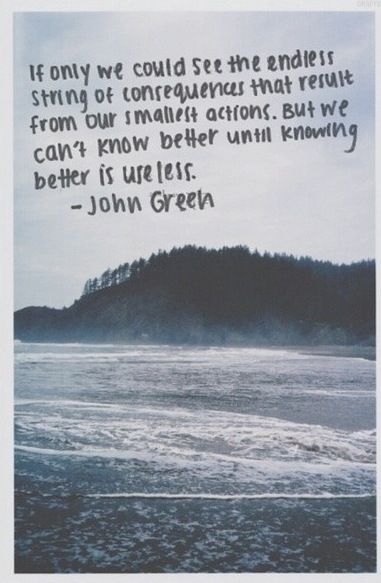 If only we could see the endless
string of consequences that result
from our smallest actions. But we
can't know better until knowing
better is useless.
- John Green